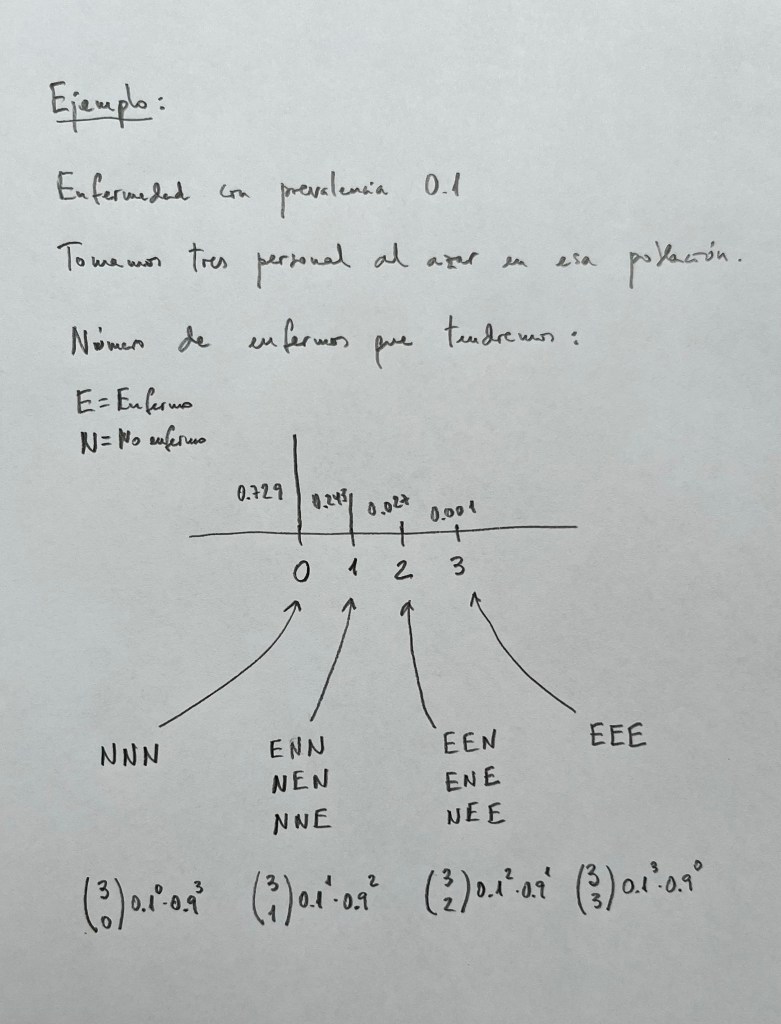 Ejemplo:
Enfermedad con prevalencia 0.1
Tomamos tres personal al azar en esa población.
Número de enfermos que tendremos:
E = Enfermo
N = No enfermo
0.729 0.243 0.027 0.001
0 1 2 3
NNN ENN EEN EEE
NEN ENE
NNE NEE
(3 0) 0.1^0 · 0.9^3 (3 1) 0.1^1 · 0.9^2 (3 2) 0.1^2 · 0.9^1 (3 3) 0.1^3 · 0.9^0